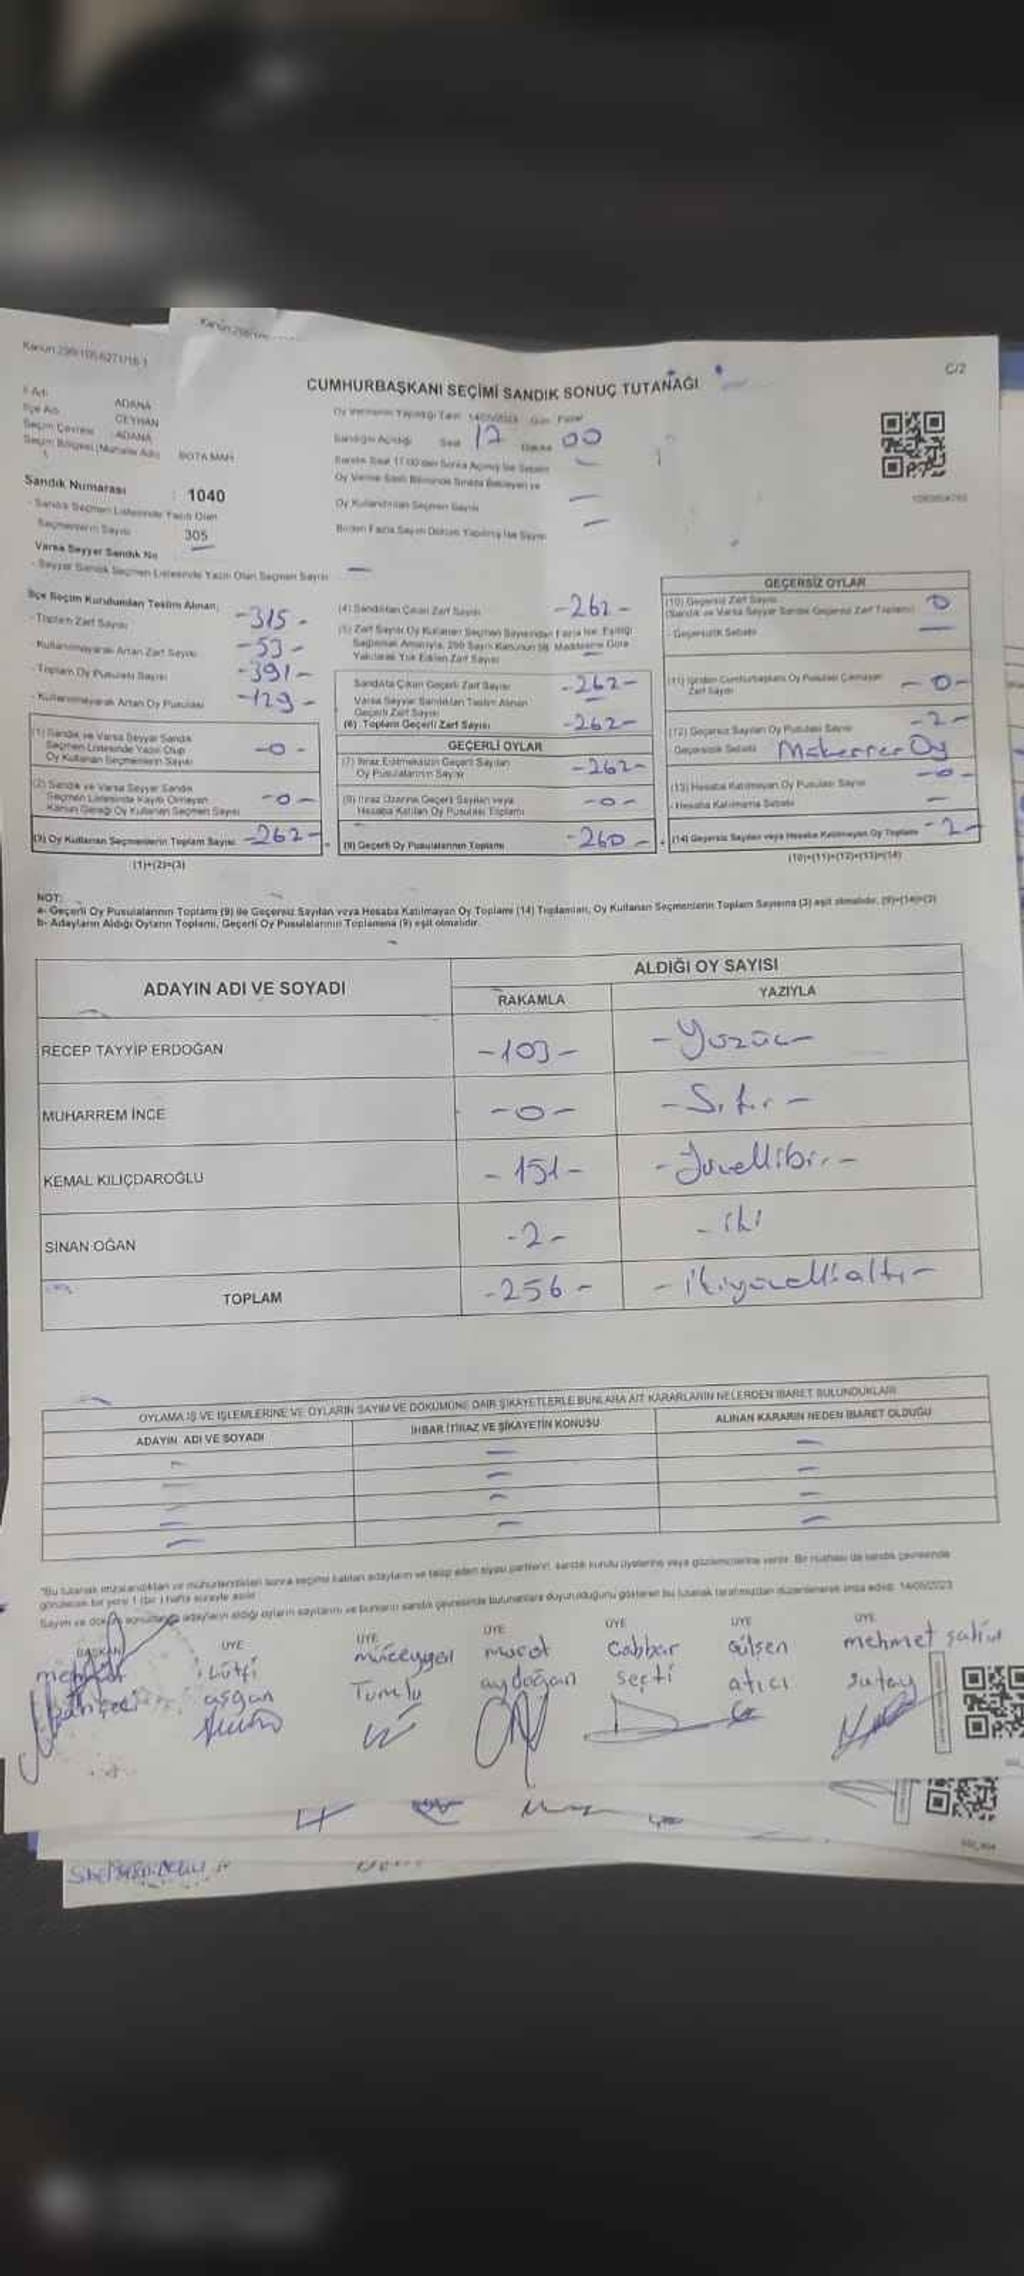 Kanun 298/105-6271/16-1
C/2
CUMHURBAŞKANI SEÇİMİ SANDIK SONUÇ TUTANAĞI
İl Adı ADANA
İlçe Adı CEYHAN
Seçim Çevresi ADANA
Seçim Bölgesi (Mahalle Adı) BOTA MAH
Sandık Numarası : 1040
- Sandık Seçmen Listesinde Yazılı Olan
Seçmenlerin Sayısı 305
Varsa Seyyar Sandık No
- Seyyar Sandık Seçmen Listesinde Yazılı Olan Seçmen Sayısı
Oy Vermenin Yapıldığı Tarih 14/05/2023 Gün Pazar
Sandığın Açıldığı Saat 17 Dakika 00
Sandık Saat 17.00'den Sonra Açılmış İse Sebebi
Oy Verme Saati Bitiminde Sırada Bekleyen ve
Oy Kullandırılan Seçmen Sayısı
Birden Fazla Sayım Döküm Yapılmış İse Sayısı
İlçe Seçim Kurulundan Teslim Alınan;
- Toplam Zarf Sayısı -315-
- Kullanılmayarak Artan Zarf Sayısı -53-
- Toplam Oy Pusulası Sayısı -391-
- Kullanılmayarak Artan Oy Pusulası -129-
(1) Sandık ve Varsa Seyyar Sandık
Seçmen Listesinde Yazılı Olup
Oy Kullanan Seçmenlerin Sayısı -0-
(2) Sandık ve Varsa Seyyar Sandık
Seçmen Listesinde Kayıtlı Olmayan
Kanun Gereği Oy Kullanan Seçmen Sayısı -0-
(3) Oy Kullanan Seçmenlerin Toplam Sayısı -262-
(1)+(2)=(3)
(4) Sandıktan Çıkan Zarf Sayısı -262-
(5) Zarf Sayısı Oy Kullanan Seçmen Sayısından Fazla İse, Eşitliği
Sağlamak Amacıyla, 298 Sayılı Kanunun 98. Maddesine Göre
Yakılarak Yok Edilen Zarf Sayısı
Sandıkta Çıkan Geçerli Zarf Sayısı -262-
Varsa Seyyar Sandıktan Teslim Alınan
Geçerli Zarf Sayısı
(6) Toplam Geçerli Zarf Sayısı -262-
GEÇERLİ OYLAR
(7) İtiraz Edilmeksizin Geçerli Sayılan
Oy Pusulalarının Sayısı -262-
(8) İtiraz Üzerine Geçerli Sayılan veya
Hesaba Katılan Oy Pusulası Toplamı -0-
(9) Geçerli Oy Pusulalarının Toplamı -260-
GEÇERSİZ OYLAR
(10) Geçersiz Zarf Sayısı
(Sandık ve Varsa Seyyar Sandık Geçersiz Zarf Toplamı) 0
- Geçersizlik Sebebi
(11) İçinden Cumhurbaşkanı Oy Pusulası Çıkmayan
Zarf Sayısı -0-
(12) Geçersiz Sayılan Oy Pusulası Sayısı -2-
Geçersizlik Sebebi Mükerrer Oy
(13) Hesaba Katılmayan Oy Pusulası Sayısı -0-
- Hesaba Katılmama Sebebi
(14) Geçersiz Sayılan veya Hesaba Katılmayan Oy Toplamı -2-
(10)+(11)+(12)+(13)=(14)
NOT:
a- Geçerli Oy Pusulalarının Toplamı (9) ile Geçersiz Sayılan veya Hesaba Katılmayan Oy Toplamı (14) Toplamları, Oy Kullanan Seçmenlerin Toplam Sayısına (3) eşit olmalıdır. (9)+(14)=(3)
b- Adayların Aldığı Oyların Toplamı, Geçerli Oy Pusulalarının Toplamına (9) eşit olmalıdır.
ADAYIN ADI VE SOYADI
ALDIĞI OY SAYISI
RAKAMLA YAZIYLA
RECEP TAYYİP ERDOĞAN -103- -Yüzüç-
MUHARREM İNCE -0- -Sıfır-
KEMAL KILIÇDAROĞLU -151- -Yüzellibir-
SİNAN OĞAN -2- -iki
TOPLAM -256- -ikiyüzellialtı-
OYLAMA İŞ VE İŞLEMLERİNE VE OYLARIN SAYIM VE DÖKÜMÜNE DAİR ŞİKAYETLERLE BUNLARA AİT KARARLARIN NELERDEN İBARET BULUNDUKLARI
ADAYIN ADI VE SOYADI İHBAR İTİRAZ VE ŞİKAYETİN KONUSU ALINAN KARARIN NEDEN İBARET OLDUĞU
"Bu tutanak imzalandıktan ve mühürlendikten sonra seçime katılan adayların ve talep eden siyasi partilerin, sandık kurulu üyelerine veya gözlemcilerine verilir. Bir nüshası da sandık çevresinde
görülecek bir yere 1 (bir ) hafta süreyle asılır.
Sayım ve döküm sonunda adayların aldığı oyların sayılarını ve bunların sandık çevresinde bulunanlara duyurulduğunu gösteren bu tutanak tarafımızdan düzenlenerek imza edildi. 14/05/2023
BAŞKAN ÜYE ÜYE ÜYE ÜYE ÜYE ÜYE
lütfi müzeyyel murat Cabbar Gülsen mehmet salih
aşgan Tumlu aydoğan seçti atıcı sutay